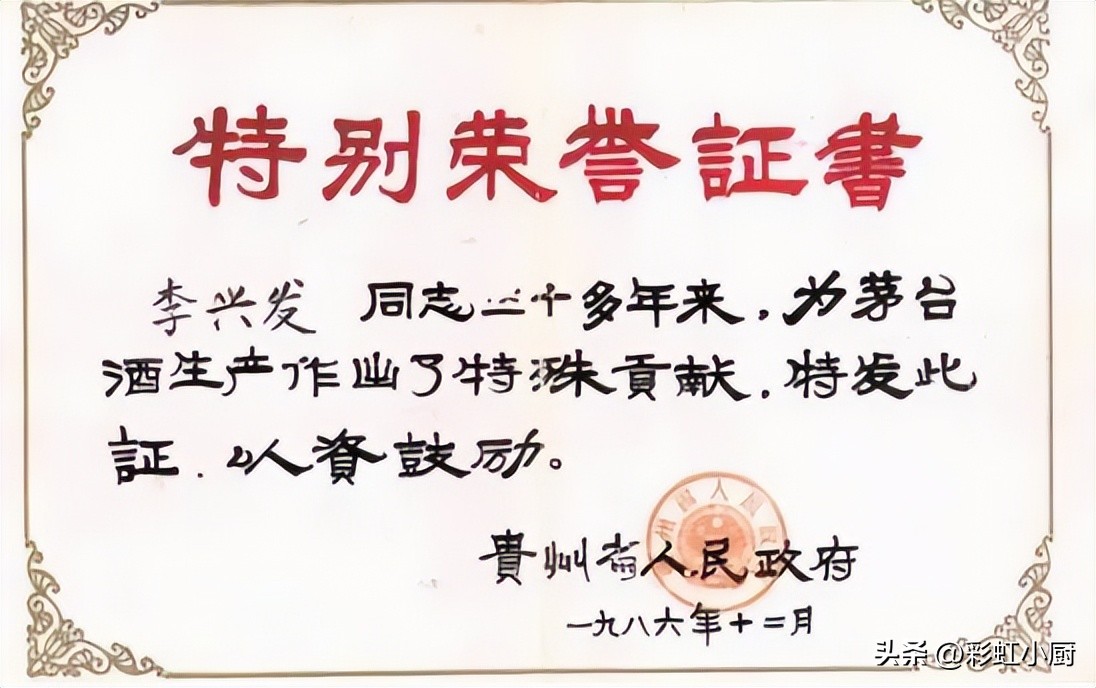 特别荣誉証書
李兴发 同志三十多年来，为茅台
酒生产作出了特殊貢献，特发此
証，以資鼓励。
貴州省人民政府
一九八六年十二月
头条 @彩虹小厨